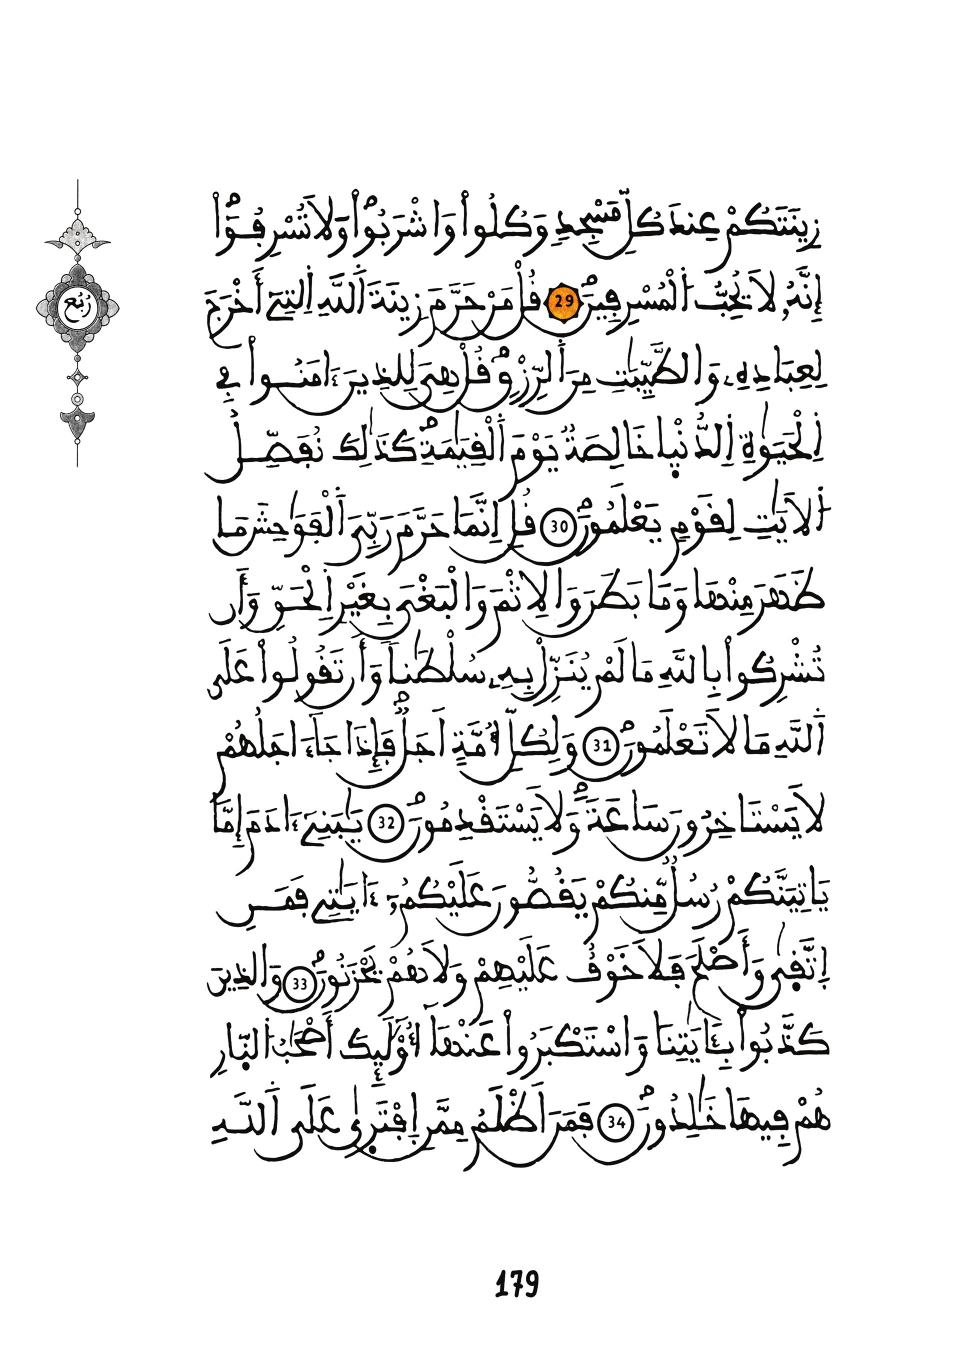 زِينَتَكُمْ عِندَ كُلِّ مَسْجِدٍ وَكُلُواْ وَاشْرَبُواْ وَلَا تُسْرِفُوٓاْ
إِنَّهُۥ لَا يُحِبُّ اُ۬لْمُسْرِفِينَ 29 قُلْ مَنْ حَرَّمَ زِينَةَ اَ۬للَّهِ اِ۬لتِےٓ أَخْرَجَ
لِعِبَادِهِۦ وَالطَّيِّبَٰتِ مِنَ اَ۬لرِّزْقِ قُلْ هِيَ لِلذِينَ ءَامَنُواْ فِے
اِ۬لْحَيَوٰةِ اِ۬لدُّنْيَا خَالِصَةٌ يَوْمَ اَ۬لْقِيَٰمَةِ كَذَٰلِكَ نُفَصِّلُ
اُ۬لَايَٰتِ لِقَوْمٍ يَعْلَمُونَ 30 قُلِ اِنَّمَا حَرَّمَ رَبِّيَ اَ۬لْفَوَٰحِشَ مَا
ظَهَرَ مِنْهَا وَمَا بَطَنَ وَالِاثْمَ وَالْبَغْيَ بِغَيْرِ اِ۬لْحَقِّ وَأَن
تُشْرِكُواْ بِاللَّهِ مَا لَمْ يُنَزِّلْ بِهِۦ سُلْطَٰناً وَأَن تَقُولُواْ عَلَى
اَ۬للَّهِ مَا لَا تَعْلَمُونَ 31 وَلِكُلِّ أُمَّةٍ اَجَلٌ فَإِذَا جَآءَ اجَلُهُمْ
لَا يَسْتَاخِرُونَ سَاعَةً وَلَا يَسْتَقْدِمُونَ 32 يَٰبَنِےٓ ءَادَمَ إِمَّا
يَاتِيَنَّكُمْ رُسُلٌ مِّنكُمْ يَقُصُّونَ عَلَيْكُمُۥٓ ءَايَٰتِے فَمَنِ
اِ۪تَّقٜيٰ وَأَصْلَحَ فَلَا خَوْفٌ عَلَيْهِمْ وَلَا هُمْ يَحْزَنُونَ 33 وَالذِينَ
كَذَّبُواْ بِـَٔايَٰتِنَا وَاسْتَكْبَرُواْ عَنْهَآ أُوْلَٰٓئِكَ أَصْحَٰبُ اُ۬لنّ۪ارِ
هُمْ فِيهَا خَٰلِدُونَ 34 فَمَنَ اَظْلَمُ مِمَّنِ اِ۪فْتَر۪يٰ عَلَى اَ۬للَّهِ
رُبُع
179